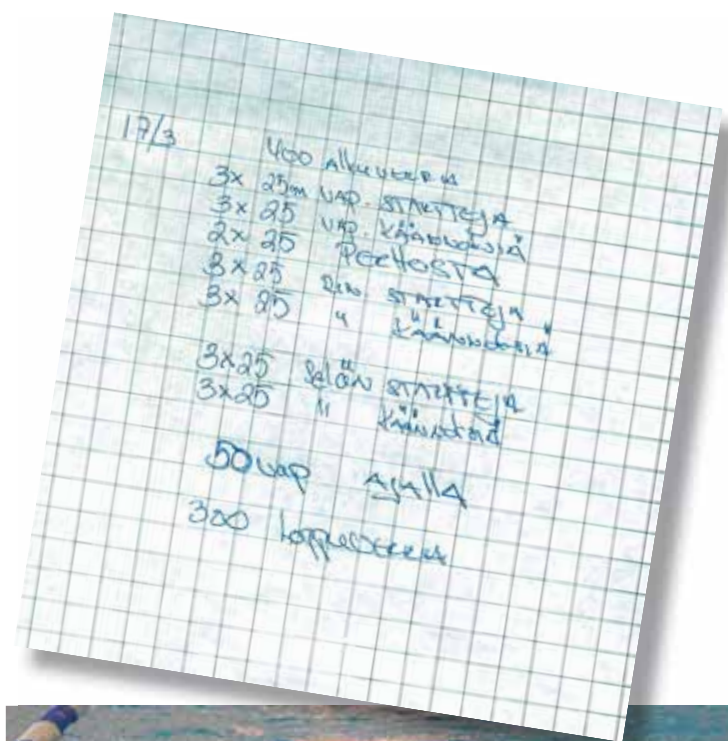 17/3
400 Alkuverra
3x 25m VAP. STARTTEJA
3x 25 VAP. KÄÄNNÖKSIÄ
2x 25 PERHOSTA
3x 25 RIN. STARTTEJA
3x 25 " KÄÄNNÖKSIÄ
3x25 SELÄN STARTTEJA
3x25 " KÄÄNNÖKSIÄ
50 VAP AJALLA
300 loppuverra